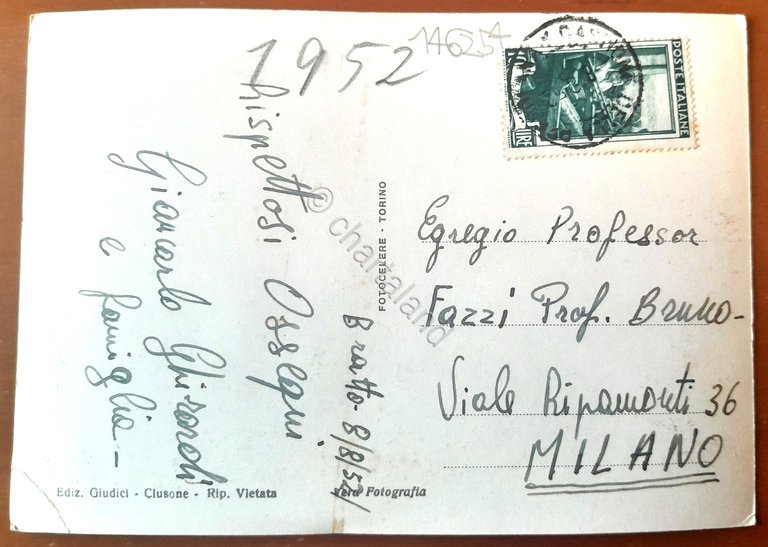 1952
146254
Rispettosi Ossequi
Giancarlo Ghirardi
e famiglia -
Bratto - 8/8/52
FOTOCELERE - TORINO
Ediz. Giudici - Clusone - Rip. Vietata
Vera Fotografia
POSTE ITALIANE
LIRE
Egregio Professor
Fazzi Prof. Bruno -
Viale Ripamonti 36
MILANO
© chartaland